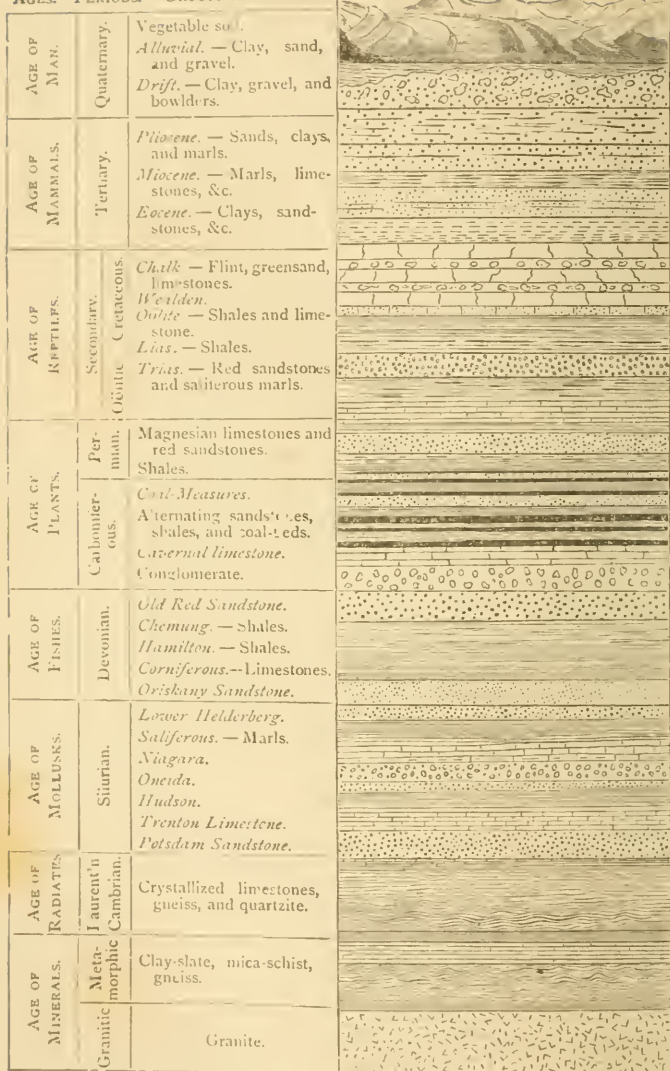 AGES. PERIODS.
AGE OF
MAN.
Quaternary.
Vegetable soil.
Alluvial. — Clay, sand,
and gravel.
Drift. — Clay, gravel, and
bowlders.
AGE OF
MAMMALS.
Tertiary.
Pliocene. — Sands, clays,
and marls.
Miocene. — Marls, lime-
stones, &c.
Eocene. — Clays, sand-
stones, &c.
AGE OF
REPTILES.
Secondary.
Oölitic Cretaceous.
Chalk — Flint, greensand,
limestones.
Wealden.
Oölite — Shales and lime-
stone.
Lias. — Shales.
Trias. — Red sandstones
and saliferous marls.
AGE OF
PLANTS.
Per-
mian.
Magnesian limestones and
red sandstones.
Shales.
Carbonifer-
ous.
Coal-Measures.
Alternating sandstones,
shales, and coal-beds.
Cavernal limestone.
Conglomerate.
AGE OF
FISHES.
Devonian.
Old Red Sandstone.
Chemung. — Shales.
Hamilton. — Shales.
Corniferous. — Limestones.
Oriskany Sandstone.
AGE OF
MOLLUSKS.
Silurian.
Lower Helderberg.
Saliferous. — Marls.
Niagara.
Oneida.
Hudson.
Trenton Limestone.
Potsdam Sandstone.
AGE OF
RADIATES
Laurent'n
Cambrian.
Crystallized limestones,
gneiss, and quartzite.
AGE OF
MINERALS.
Meta-
morphic
Clay-slate, mica-schist,
gneiss.
Granitic
Granite.